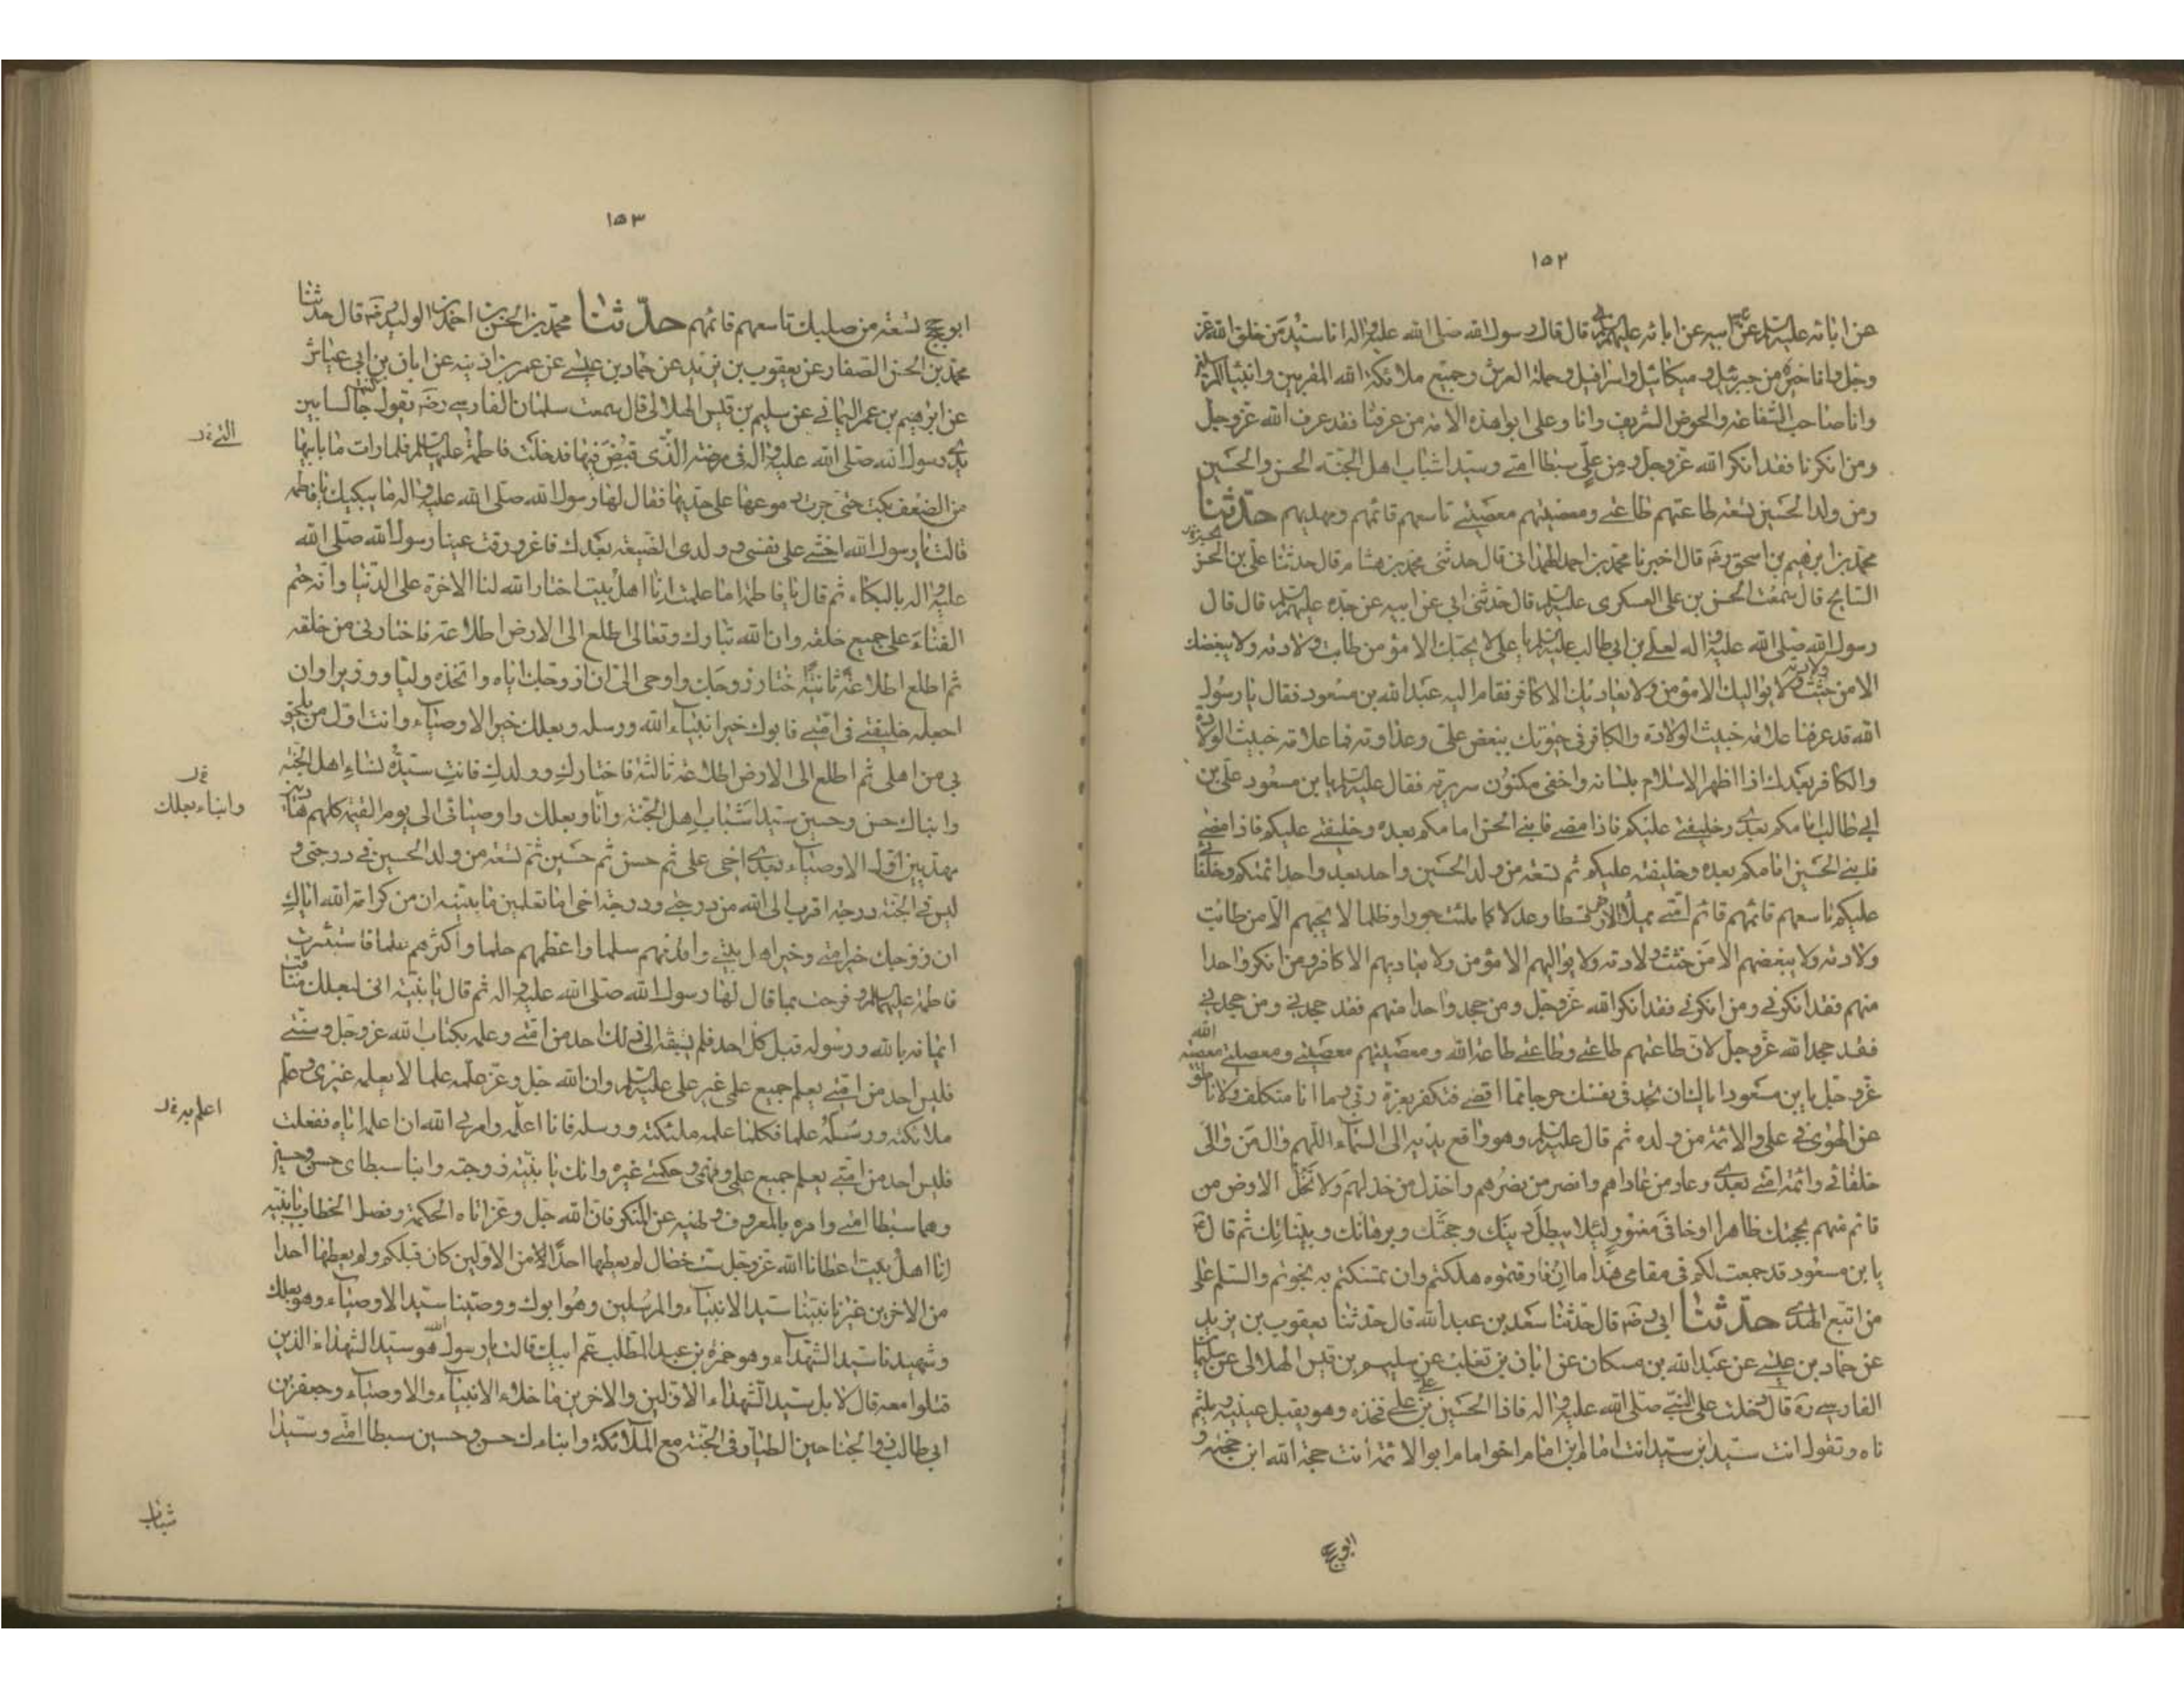 ١٥٢
عن ابائه عليه السلم عن ابيه عن ابائه عليهم السلم قال قال رسول الله صلى الله عليه واله انا سيد من خلق الله عز
وجل وانا خير من جبرئيل وميكائيل واسرافيل وحملة العرش وجميع ملائكة الله المقربين وانبياء المرسلين
وانا صاحب الشفاعة والحوض الشريف وانا وعلى ابوا هذه الامة من عرفنا فقد عرف الله عز وجل
ومن انكرنا فقد انكر الله عز وجل ومن على سبطا امتى وسيدا شباب اهل الجنة الحسن والحسين
ومن ولد الحسين تسعة طاعتهم طاعتى ومعصيتهم معصيتى تاسعهم قائمهم ومهديهم حدثنا
محمد بن ابرهيم بن اسحق رضه قال اخبرنا محمد بن احمد الهمدانى قال حدثنى محمد بن هشام قال حدثنا على بن الحسن
السايح قال سمعت الحسن بن على العسكرى عليه السلم قال حدثنى ابى عن ابيه عن جده عليهم السلم قال قال
رسول الله صلى الله عليه واله لعلى بن ابى طالب عليه السلم يا على لا يحبك الا مؤمن طابت ولادته ولا يبغضك
الا من خبثت ولادته ولا يواليك الا مؤمن ولا يعاديك الا كافر فقام اليه عبد الله بن مسعود فقال يا رسول
الله قد عرفنا علامة خبيث الولادة والكافر فى حيوتك ببغض على وعداوته فما علامة خبيث الولادة
والكافر بعدك اذا اظهر الاسلام بلسانه واخفى مكنون سريرته فقال عليه السلم يا بن مسعود على بن
ابى طالب امامكم بعدى وخليفتى عليكم فاذا مضى فابنى الحسن امامكم بعده وخليفتى عليكم فاذا مضى
فابنى الحسين امامكم بعده وخليفته عليكم ثم تسعة من ولد الحسين واحد بعد واحد ائمتكم وخلفائى
عليكم تاسعهم قائمهم قائم امتى يملأ الارض قسطا وعدلا كما ملئت جورا وظلما لا يحبهم الا من طابت
ولادته ولا يبغضهم الا من خبثت ولادته ولا يواليهم الا مؤمن ولا يعاديهم الا كافر ومن انكر واحدا
منهم فقد انكرنى ومن انكرنى فقد انكر الله عز وجل ومن جحد واحدا منهم فقد جحدنى ومن جحدنى
فقد جحد الله عز وجل لان طاعتهم طاعتى وطاعتى طاعة الله ومعصيتهم معصيتى ومعصيتى معصية الله
عز وجل يا بن مسعود اياك ان تجد فى نفسك حرجا مما اقضى فتكفر بعزة ربى ما انا متكلف ولا ناطق
عن الهوى فى على والائمة من ولده ثم قال عليه السلم وهو رافع يديه الى السماء اللهم وال من والى
خلفائى وائمة امتى بعدى وعاد من عاداهم وانصر من نصرهم واخذل من خذلهم ولا تخل الارض من
قائم منهم بحجتك ظاهرا او خافى مغمور لئلا يبطل دينك وحجتك وبرهانك وبيناتك ثم قال ع
يا بن مسعود قد جمعت لكم فى مقامى هذا ما ان فارقتموه هلكتم وان تمسكتم به نجوتم والسلم على
من اتبع الهدى حدثنا ابى رضه قال حدثنا سعد بن عبد الله قال حدثنا يعقوب بن يزيد
عن حماد بن عيسى عن عبد الله بن مسكان عن ابان بن تغلب عن سليم بن قيس الهلالى عن سلمان
الفارسى ره قال دخلت على النبى صلى الله عليه واله فاذا الحسين بن على على فخذه وهو يقبل عينيه ويلثم
فاه ويقول انت سيد ابن سيد انت امام ابن امام اخو امام ابو الائمة انت حجة الله ابن حجته و
ابو حجج
١٥٣
ابو حجج تسعة من صلبك تاسعهم قائمهم حدثنا محمد بن الحسن بن احمد بن الوليد رضه قال حدثنا
محمد بن الحسن الصفار عن يعقوب بن يزيد عن حماد بن عيسى عن عمر بن اذينه عن ابان بن ابى عياش
عن ابرهيم بن عمر اليمانى عن سليم بن قيس الهلالى قال سمعت سلمان الفارسى رضه يقول كنت جالسا بين
يدى رسول الله صلى الله عليه واله فى مرضته الذى قبض فيها فدخلت فاطمة عليها السلم فلما رات ما بابيها
من الضعف بكت حتى جرت دموعها على خديها فقال لها رسول الله صلى الله عليه واله ما يبكيك يا فاطمه
قالت يا رسول الله اخشى على نفسى وولدى الضيعة بعدك فاغرورقت عينا رسول الله صلى الله
عليه واله بالبكاء ثم قال يا فاطمة اما علمت انا اهل بيت اختار الله لنا الاخرة على الدنيا وانه حتم
الفناء على جميع خلقه وان الله تبارك وتعالى اطلع الى الارض اطلاعة فاختارنى من خلقه
ثم اطلع اطلاعة ثانية اختار زوجك واوحى الى ان ازوجك اياه واتخذه وليا ووزيرا وان
اجعله خليفتى فى امتى فابوك خير انبياء الله ورسله وبعلك خير الاوصياء وانت اول من يلحق
بى من اهلى ثم اطلع الى الارض اطلاعة ثالثة فاختارك وولدك فانت سيدة نساء اهل الجنة
وابناك حسن وحسين سيدا شباب اهل الجنة وانا وبعلك واوصيائى الى يوم القيمة كلهم هادين
مهديين اول الاوصياء بعدى اخى على ثم حسن ثم حسين ثم تسعة من ولد الحسين فى درجتى و
ليس فى الجنة درجة اقرب الى الله من درجتى ودرجة اخى اما تعلمين يا بنية ان من كرامة الله اياك
ان زوجك خير امتى وخير اهل بيتى واقدمهم سلما واعظمهم حلما واكثرهم علما فاستبشرت
فاطمة عليها السلم وفرحت بما قال لها رسول الله صلى الله عليه واله ثم قال يا بنية ان لبعلك مناقب
ايمانه بالله ورسوله قبل كل احد فلم يسبقه الى ذلك احد من امتى وعلمه بكتاب الله عز وجل وسنتى
فليس احد من امتى يعلم جميع علمى غير على عليه السلم وان الله جل وعز علمنى علما لا يعلمه غيرى وعلم
ملائكته ورسله علما فكلما علمه ملئكته ورسله فانا اعلمه وامرنى الله ان اعلمه اياه ففعلت
فليس احد من امتى يعلم جميع علمى وفهمى وحكمتى غيره وانك يا بنية زوجته وابنا سبطاى حسن وحسين
وهما سبطا امتى وامره بالمعروف ونهيه عن المنكر فان الله جل وعز اتاه الحكمة وفصل الخطاب يا بنيه
انا اهل بيت اعطانا الله عز وجل ست خصال لم يعطها احدا من الاولين كان قبلكم ولم يعطها احدا
من الاخرين غيرنا نبينا سيد الانبياء والمرسلين وهو ابوك ووصينا سيد الاوصياء وهو بعلك
وشهيدنا سيد الشهداء وهو حمزة بن عبد المطلب عم ابيك قالت يا رسول الله هو سيد الشهداء الذين
قتلوا معه قال لا بل سيد الشهداء الاولين والاخرين ما خلا الانبياء والاوصياء وجعفر بن
ابى طالب ذو الجناحين الطيار فى الجنة مع الملائكة وابناك حسن وحسين سبطا امتى وسيدا
وابناء بعلك
اعلم به
شباب